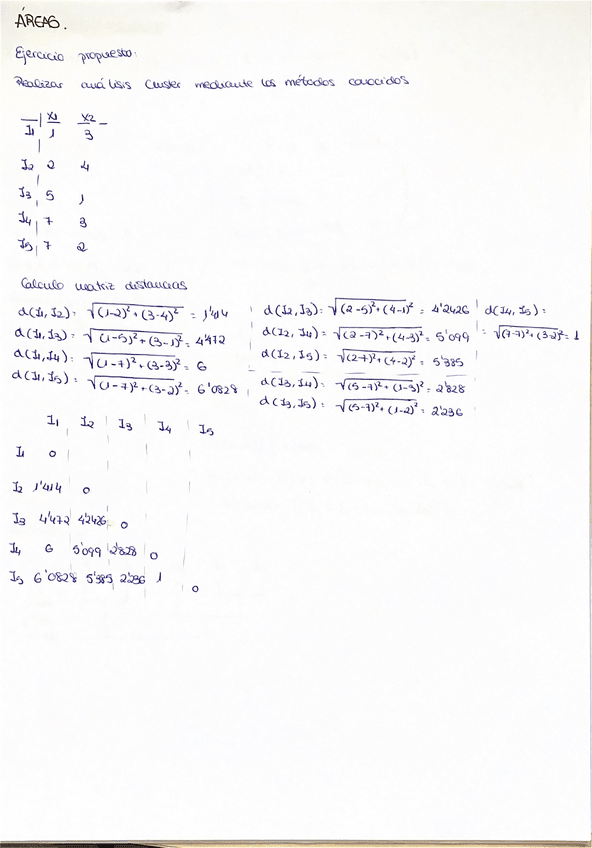 ÁREAS.
Ejercicio propuesto:
Realizar análisis cluster mediante los métodos conocidos
X1 X2
I1 1 3
I2 2 4
I3 5 1
I4 7 3
I5 7 2
Calculo matriz distancias
d(I1,I2)= √(1-2)²+(3-4)² = 1'414
d(I1,I3)= √(1-5)²+(3-1)² = 4'472
d(I1,I4)= √(1-7)²+(3-3)² = 6
d(I1,I5)= √(1-7)²+(3-2)² = 6'0828
d(I2,I3)= √(2-5)²+(4-1)² = 4'2426
d(I2,I4)= √(2-7)²+(4-3)² = 5'099
d(I2,I5)= √(2-7)²+(4-2)² = 5'385
d(I3,I4)= √(5-7)²+(1-3)² = 2'828
d(I3,I5)= √(5-7)²+(1-2)² = 2'236
d(I4,I5)=
= √(7-7)²+(3-2)² = 1
I1 I2 I3 I4 I5
I1 0
I2 1'414 0
I3 4'472 4'2426 0
I4 6 5'099 2'828 0
I5 6'0828 5'385 2'236 1 0